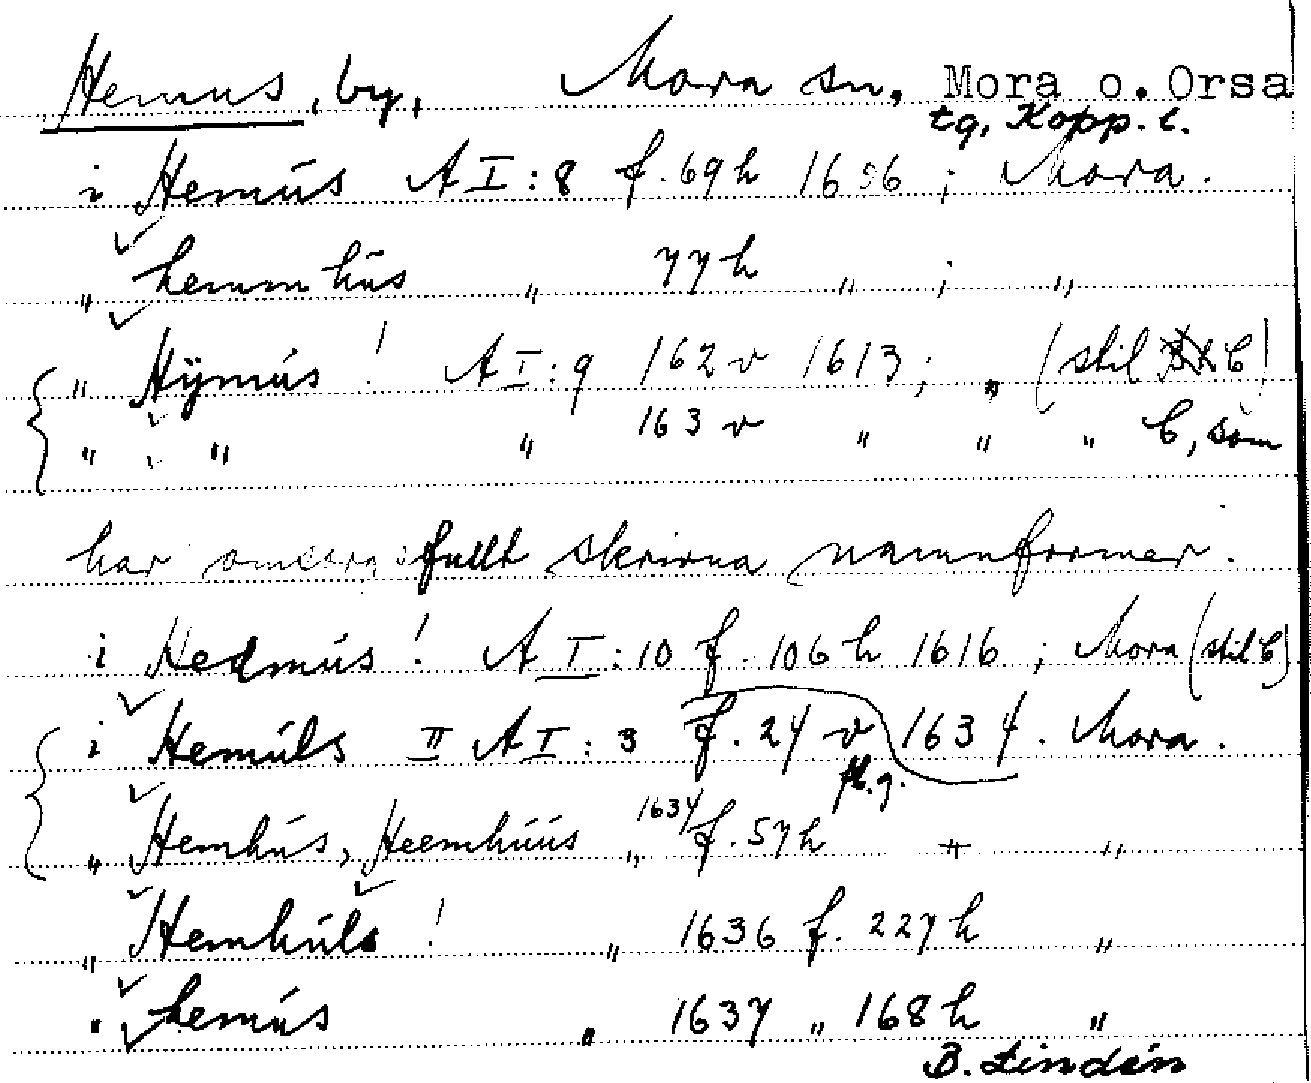 Hemus, by, Mora sn. Mora o. Orsa
tg, Kopp. l.
i Hemús A I:8 f. 69 h 1656 ; Mora.
„ hemmhús „ 77 h „ ; „
„ Hÿmús ! A I:9 162 v 1613 ; „ (stil C!
„ „ „ 163 v „ „ „ C, som
har omsorgsfullt skrivna namnformer.
i Hedmús ! A I:10 f. 106 h 1616 ; Mora (stil C)
i Hemúls II A I:3 f. 24 v 1634. Mora.
fl.g.
„ Hemhús, Heemhúús „ 1634/ f. 57 h „ „
„ Hemhúls ! „ 1636 f. 227 h „
„ hemús „ 1637 „ 168 h „
B. Lindén